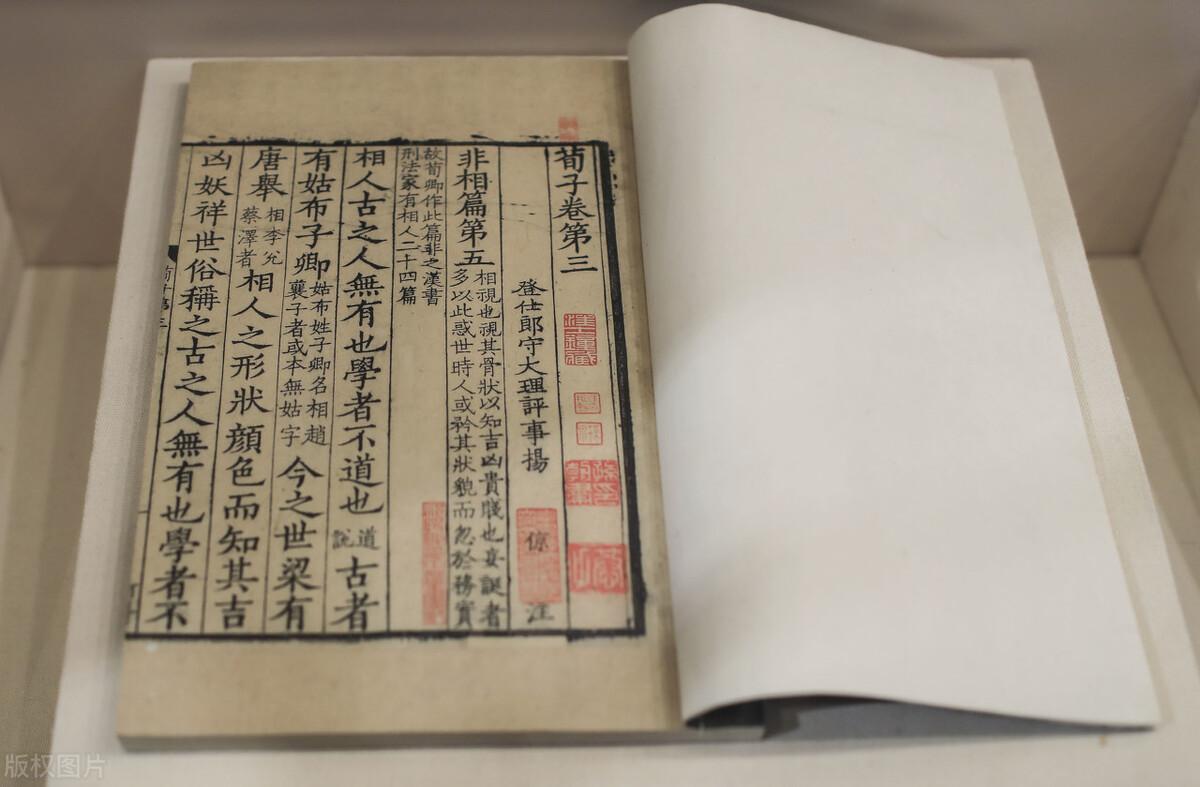 荀子卷第三
登仕郎守大理評事揚 倞 注
非相篇第五 相視也視其骨狀以知吉凶貴賤也妄誕者
多以此惑世時人或矜其狀貌而忽於務實
故荀卿作此篇非之漢書
刑法家有相人二十四篇
相人古之人無有也學者不道也 道說 古者
有姑布子卿 姑布姓子卿名相趙襄子者或本無姑字 今之世梁有
唐舉 相李兌蔡澤者 相人之形狀顔色而知其吉
凶妖祥世俗稱之古之人無有也學者不
版权图片